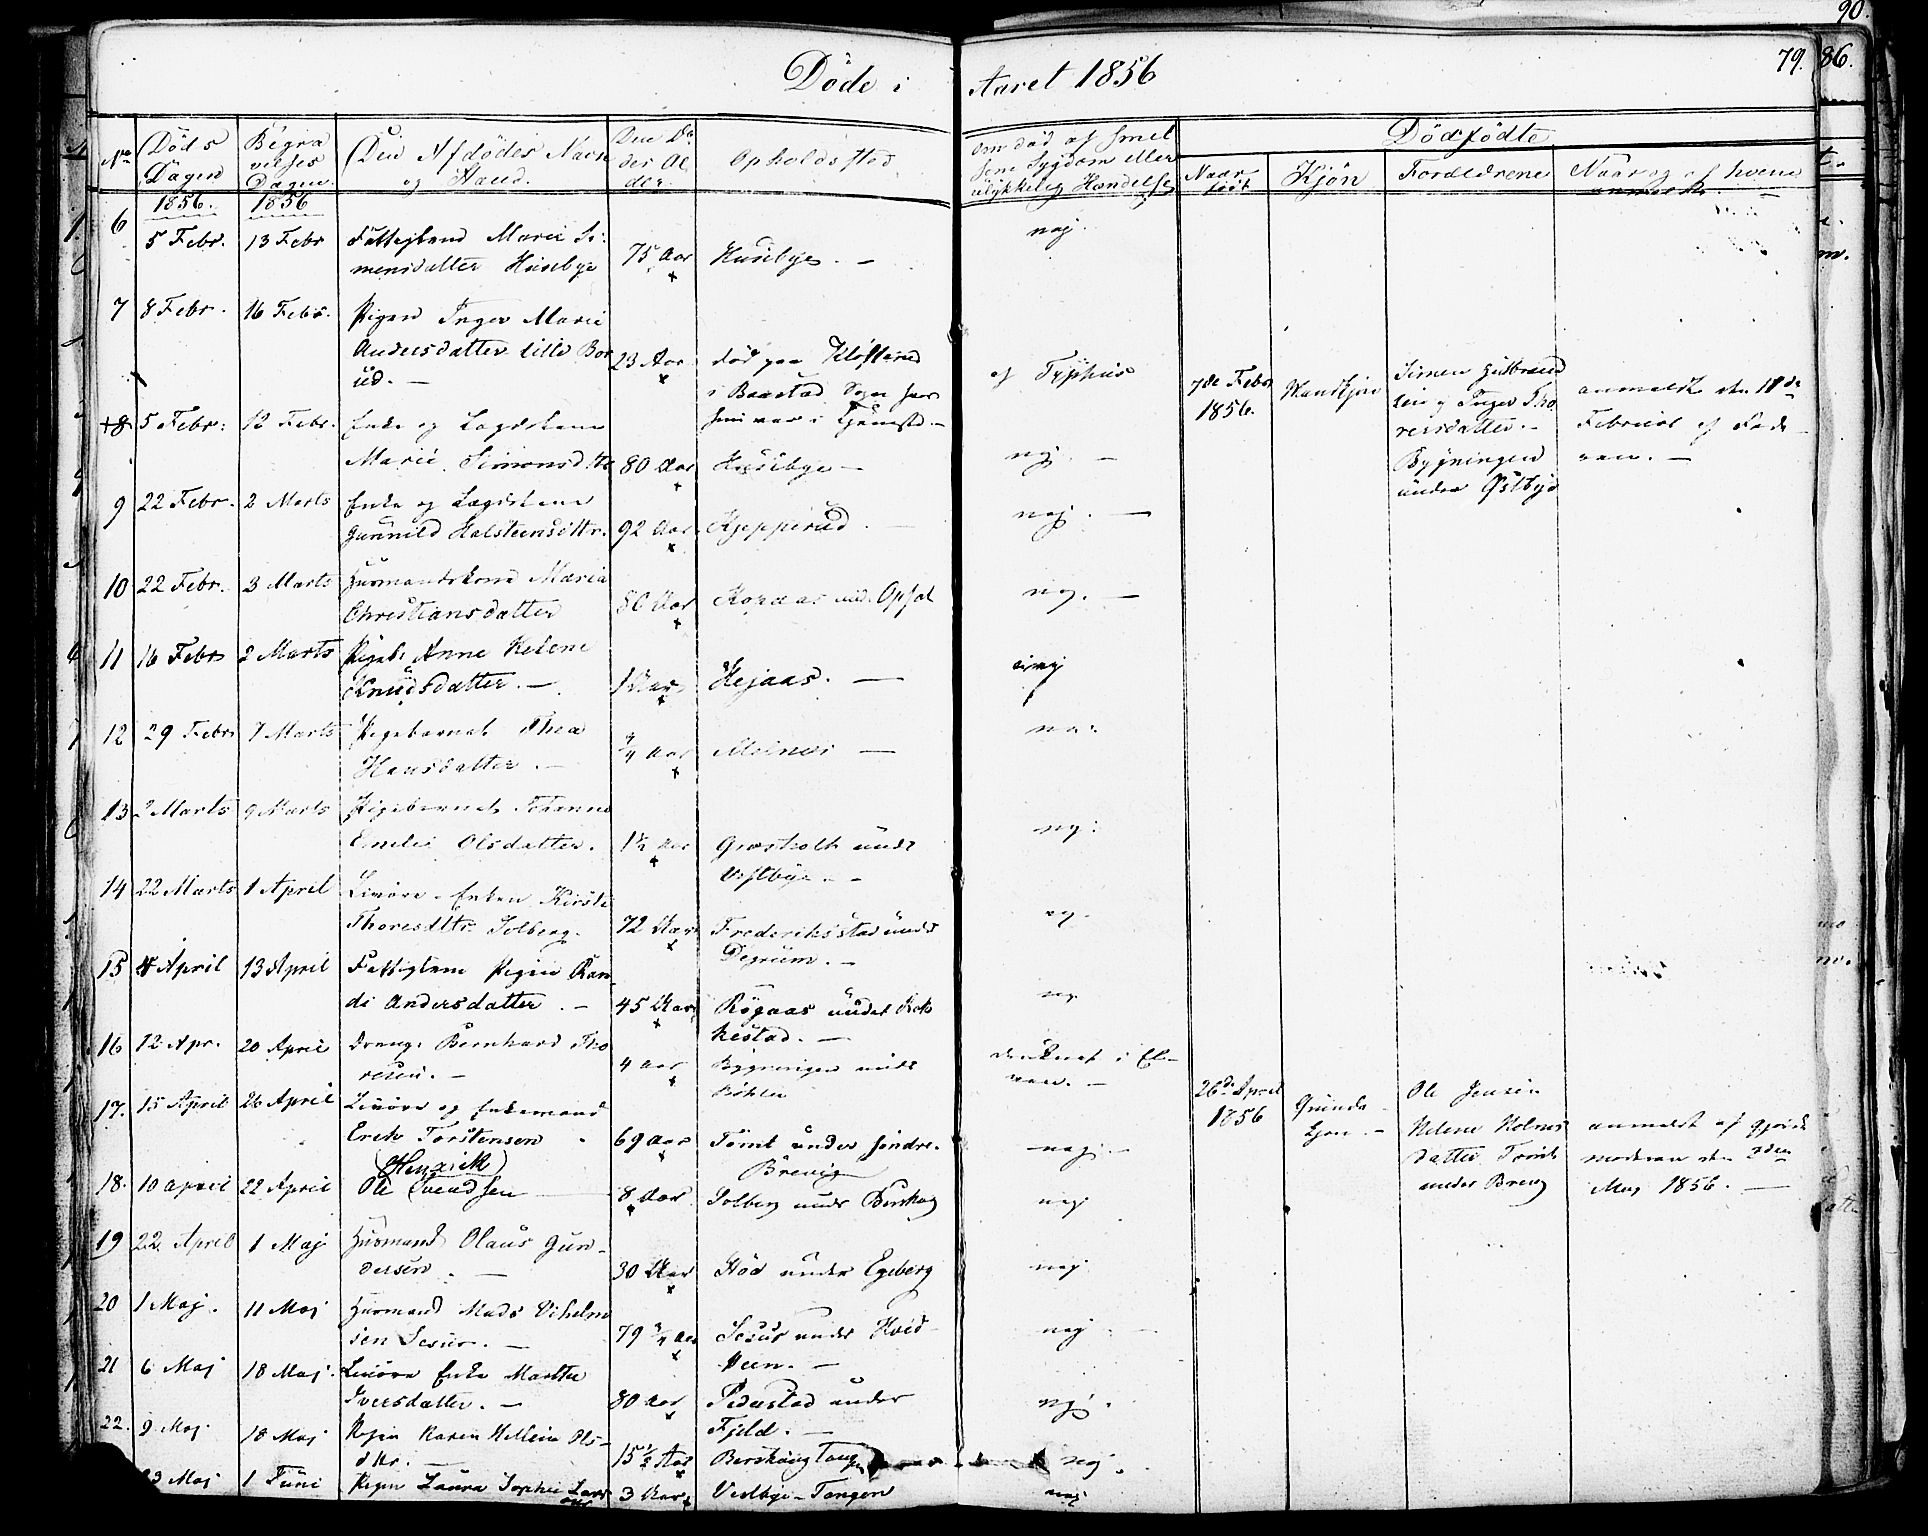 90.
Döde i Aaret 1856
79. 86.
No
Döds Dagen
Begravelses Dagen
Den Afdödes Navn og Stand.
Den Dö des Al der.
Opholdssted
Om död af smet
sone Sygdom eller
ulykkelig Hændelse
Dödfödte
Naar födt
Kjön
Forældrene
Naar og af hvem anmeldt
1856. 1856
6 5 Febr. 13 Febr Fattiglem Marie Si- 75 Aar Husebye. — nej.
mensdatter Husebye
7 8 Febr. 16 Febr. Pigen Inger Marie
Andersdatter lille Bor 23 Aar död paa Klöfterud af Typhus
ud. — i Baastad Sogn hvor
7de Febr 1856. Mandkjön Simen Gulbrand
sen og Inger Tho
resdatter. —
Bygningen
under Östbye
anmeldt den 11te
Februar af Fade-
ren. —
+8 5 Febr. 12 Febr. Enke og Lægdslem hun var i Tjeneste. —
Marie Simensdtr 80 Aar Husebye — nej. —
9 22 Febr. 2 Marts Enke og Lægdslem
Gunnild Halsteensdttr. 92 Aar Kjepperud. — nej. —
10 22 Febr. 3 Marts Husmandskone Maria
Christiansdatter 80 Aar Kopaas und. Opsal nej. —
11 16 Febr 2 Marts Pigeb. Anne Helene
Knudsdatter. — 1 Aar Hejaas. — nej
12 29 Febr. 7 Marts Pigebarnet Thea
Hansdatter. — 3/4 Aar —
13 2 Marts 9 Marts Pigebarnet Johanne
Emelie Olsdatter. 1 1/2 Aar Græsholt unde nej.
Vestbye. —
14 22 Marts 1 April Livöre Enken Kirsti
Thoresdttr. Solberg. 72 Aar Frederiksstad unde nej.
Degrum. —
15 4 April 13 April Fattiglem Pigen Ran
di Andersdatter. — 45 Aar Rögaas under Rak nej.
kestad. —
16 12 Apr. 20 April Dreng. Bernhard Tho
resen. — 4 Aar Bygningen unde druknet i El-
ven. —
Böhler
17. 15 April 26 April Livöre og Enkemand
Erik Torstensen 69 Aar Tomt under söndre nej. —
Brevig
26de April 1856 Qvinde-
kjön. —
Ole Jensen
Helene Holms
datter Tomt
under Brevig
anmeldt af Gjorde
moderen den 3den
Maj 1856. —
(Henrich)
18. 10 april 22 April Ole Svendsen 8 Aar Solberg unde Berskoug nej
19 22 April 1 Maj Husmand Olaus Gun-
dersen. — 30 Aar Stöd under Egeberg nej
20 1 Maj. 11 Maj Husmand Mads Vilhelm
sen Sesus. — 79 3/4 Aar Sesus under Hvid- nej. —
steen. —
21 6 Maj 18 Maj. Livöre Enke Marthe
Iversdatter. — 80 Aar Pederstad under nej.
Fjeld. —
22. 9 Maj. 18 Maj Pigen Karen Helleine Ols-
dttr. — 15 1/2 Aar Berskoug Tangen nej.
13 Maj 1 Juni Pigen Laura Sophie Lars 3 Aar Vestbye-Tangen nej